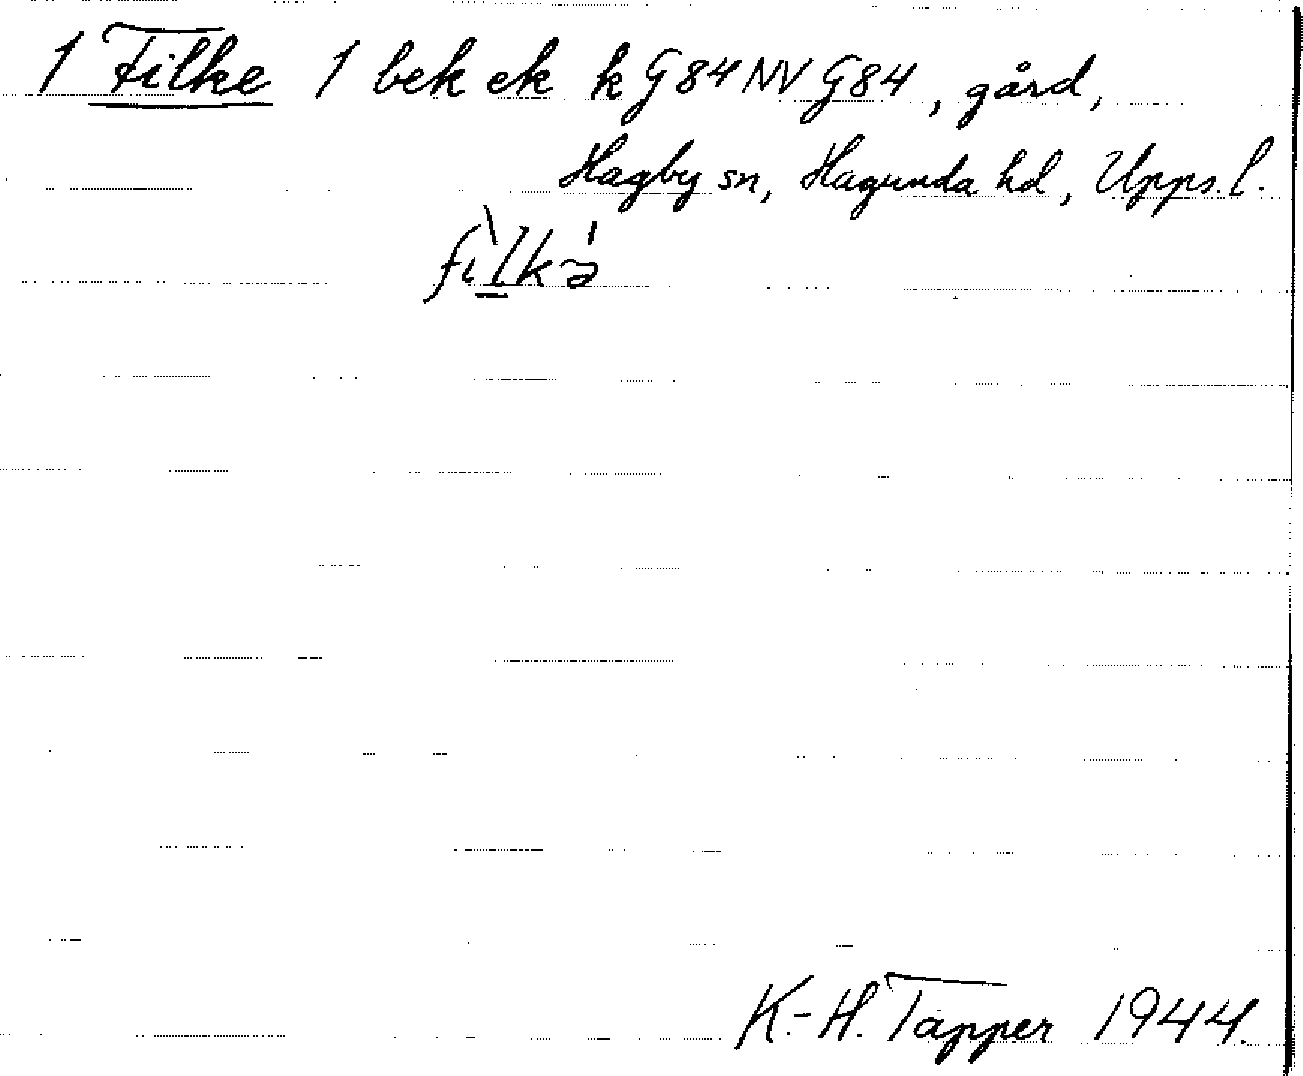 1 Filke 1 bek ek k G84NV G84, gård,
Hagby sn, Hagunda hd, Upps. l.
fìlkə́
K.-H. Tapper 1944.